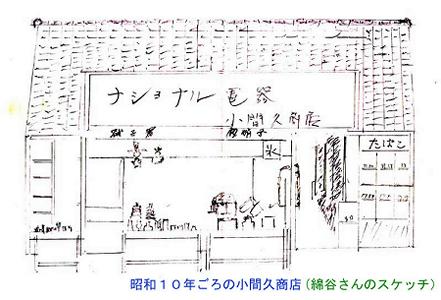 ナショナル電器
小間久商店
氷
たばこ
昭和１０年ごろの小間久商店（綿谷さんのスケッチ）